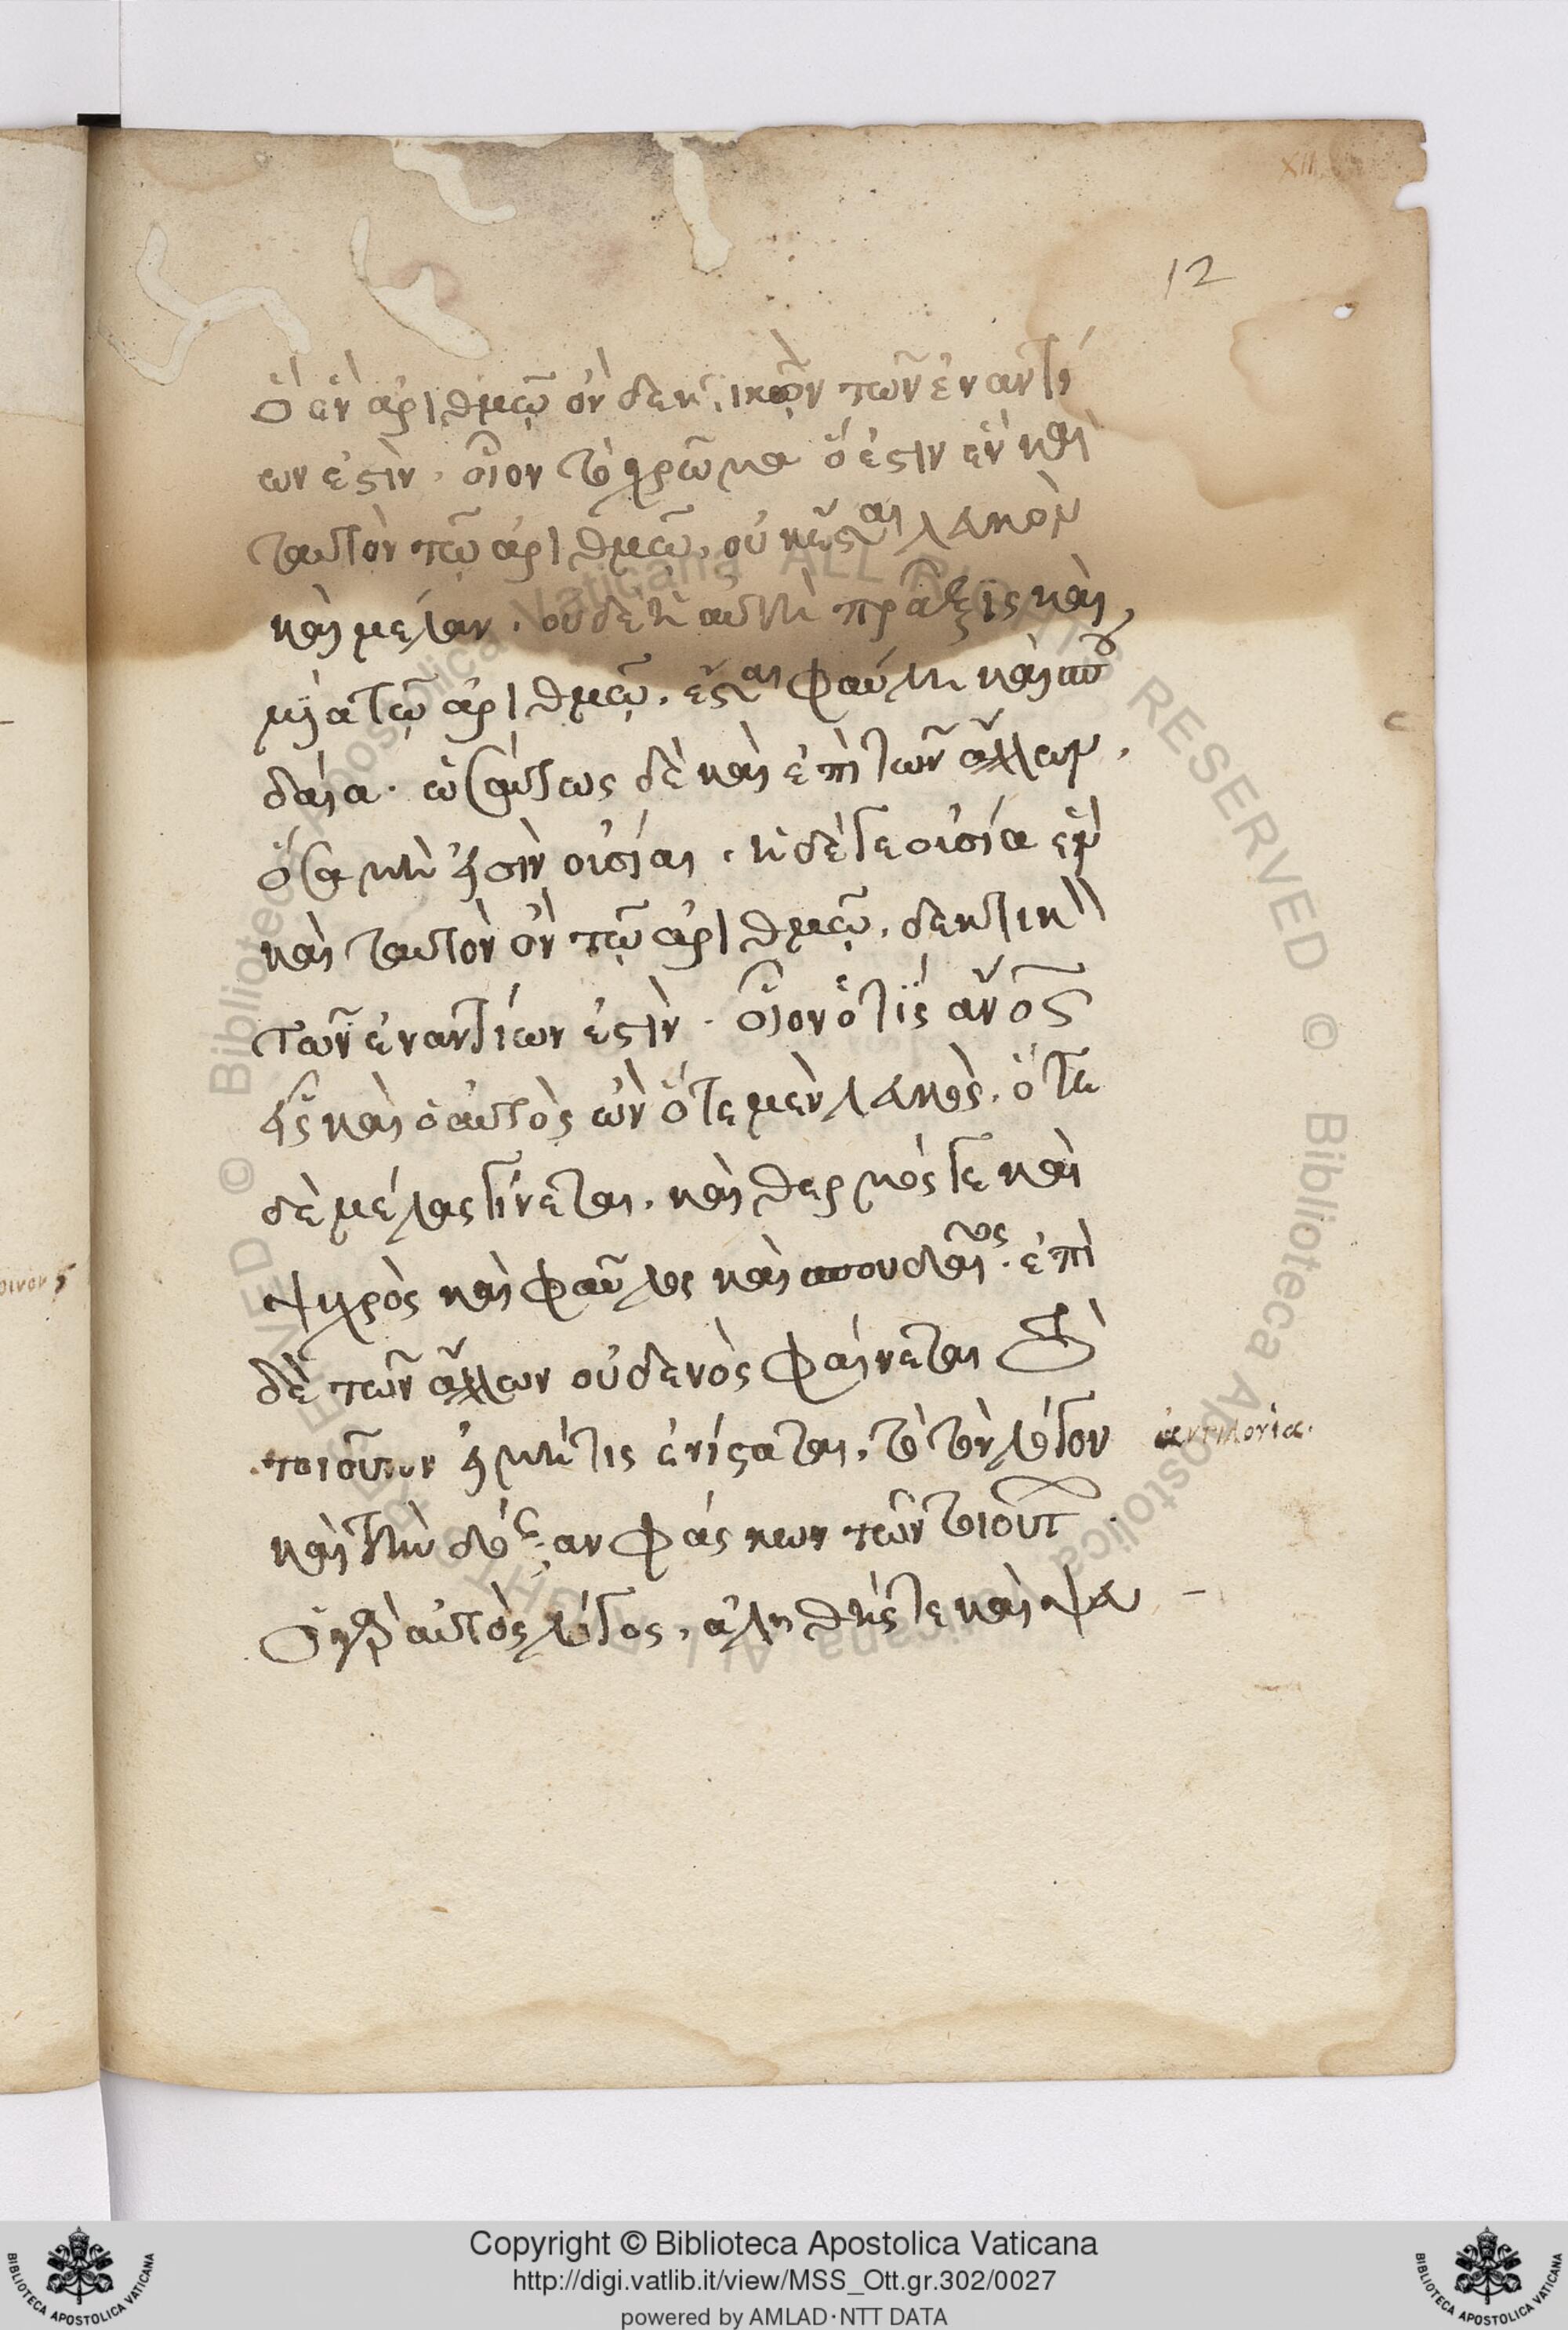 12
ὃ ἓν ἀριθμῷ ὂν δεκτικὸν τῶν ἐναντί
ων ἐστὶν. οἷον τὸ χρῶμα ὅ ἐστιν ἓν καὶ
ταυτὸν τῷ ἀριθμῷ, οὐκ ἔσται λευκὸν
καὶ μέλαν. οὐδὲ ἡ αὐτὴ πρᾶξις καὶ
μία τῷ ἀριθμῷ, ἔσται φαύλη καὶ σπου
δαία. ὡσαύτως δὲ καὶ ἐπὶ τῶν ἄλλων,
ὅσα μή εἰσιν οὐσίαι. ἡ δέ γε οὐσία ἓν
καὶ ταυτὸν ὂν τῷ ἀριθμῷ, δεκτικὴ
τῶν ἐναντίων ἐστὶν. οἷον ὁ τὶς ἄνος
εἷς καὶ ὁ αὐτὸς ὢν ὅτε μὲν λευκὸς, ὅτε
δὲ μέλας γίνεται, καὶ θερμός τε καὶ
ψυχρὸς καὶ φαῦλος καὶ σπουδαῖος. ἐπὶ
δὲ τῶν ἄλλων οὐδενὸς φαίνεται τὸ
τοιοῦτον εἰ μή τις ἐνίσταται, τὸ τὸν λόγον
καὶ τὴν δόξαν φάσκων τῶν τοιούτ
ὁ γὰρ αὐτὸς λόγος, ἀληθής τε καὶ ψευ
ἀντιλογία.
Copyright © Biblioteca Apostolica Vaticana
http://digi.vatlib.it/view/MSS_Ott.gr.302/0027
powered by AMLAD·NTT DATA